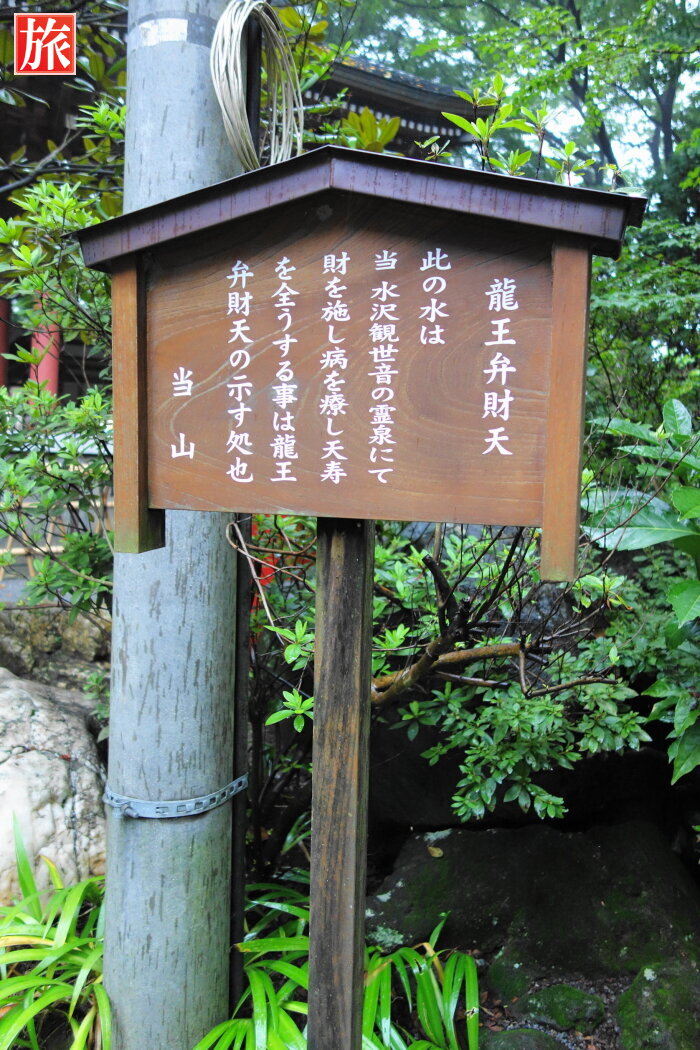 旅
龍王弁財天
此の水は
当 水沢観世音の霊泉にて
財を施し病を療し天寿
を全うする事は龍王
弁財天の示す処也
当山